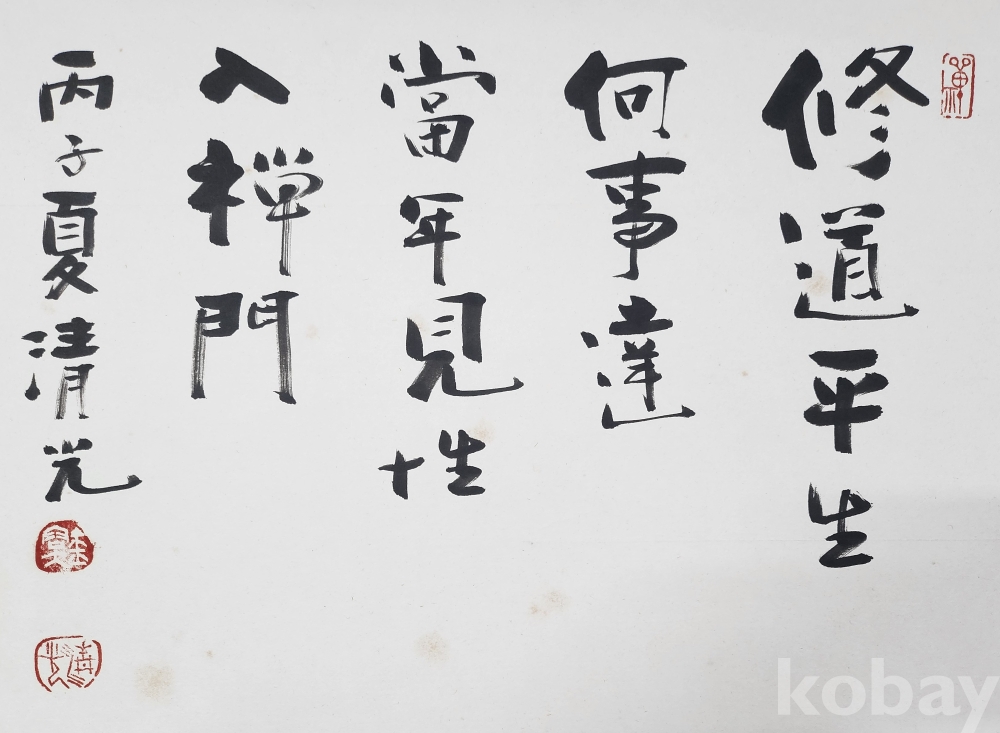 修道平生
何事達
當年見性
入禅門
丙子夏清光
kobay